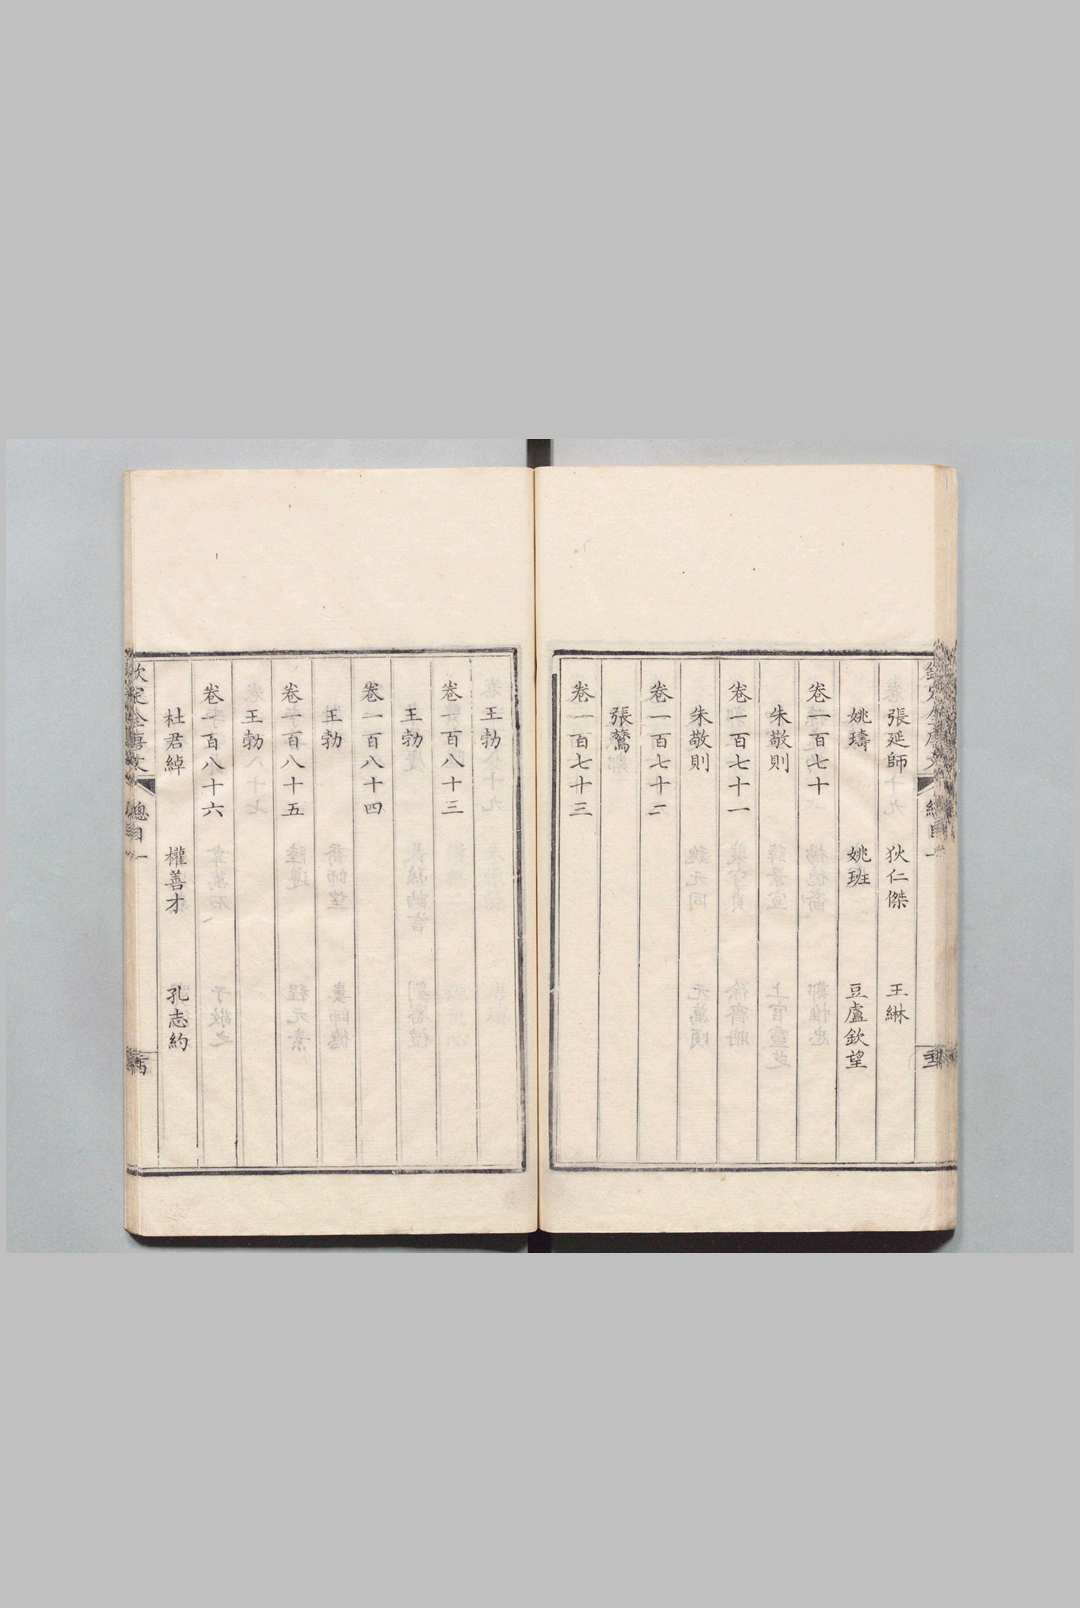 欽定全唐文 總目一
張延師 狄仁傑 王綝
姚璹 姚班 豆盧欽望
卷一百七十
朱敬則
卷一百七十一
朱敬則
卷一百七十二
張鷟
卷一百七十三
王勃
卷一百八十三
王勃
卷一百八十四
王勃
卷一百八十五
王勃
卷一百八十六
杜君綽 權善才 孔志約
欽定全唐文 總目一